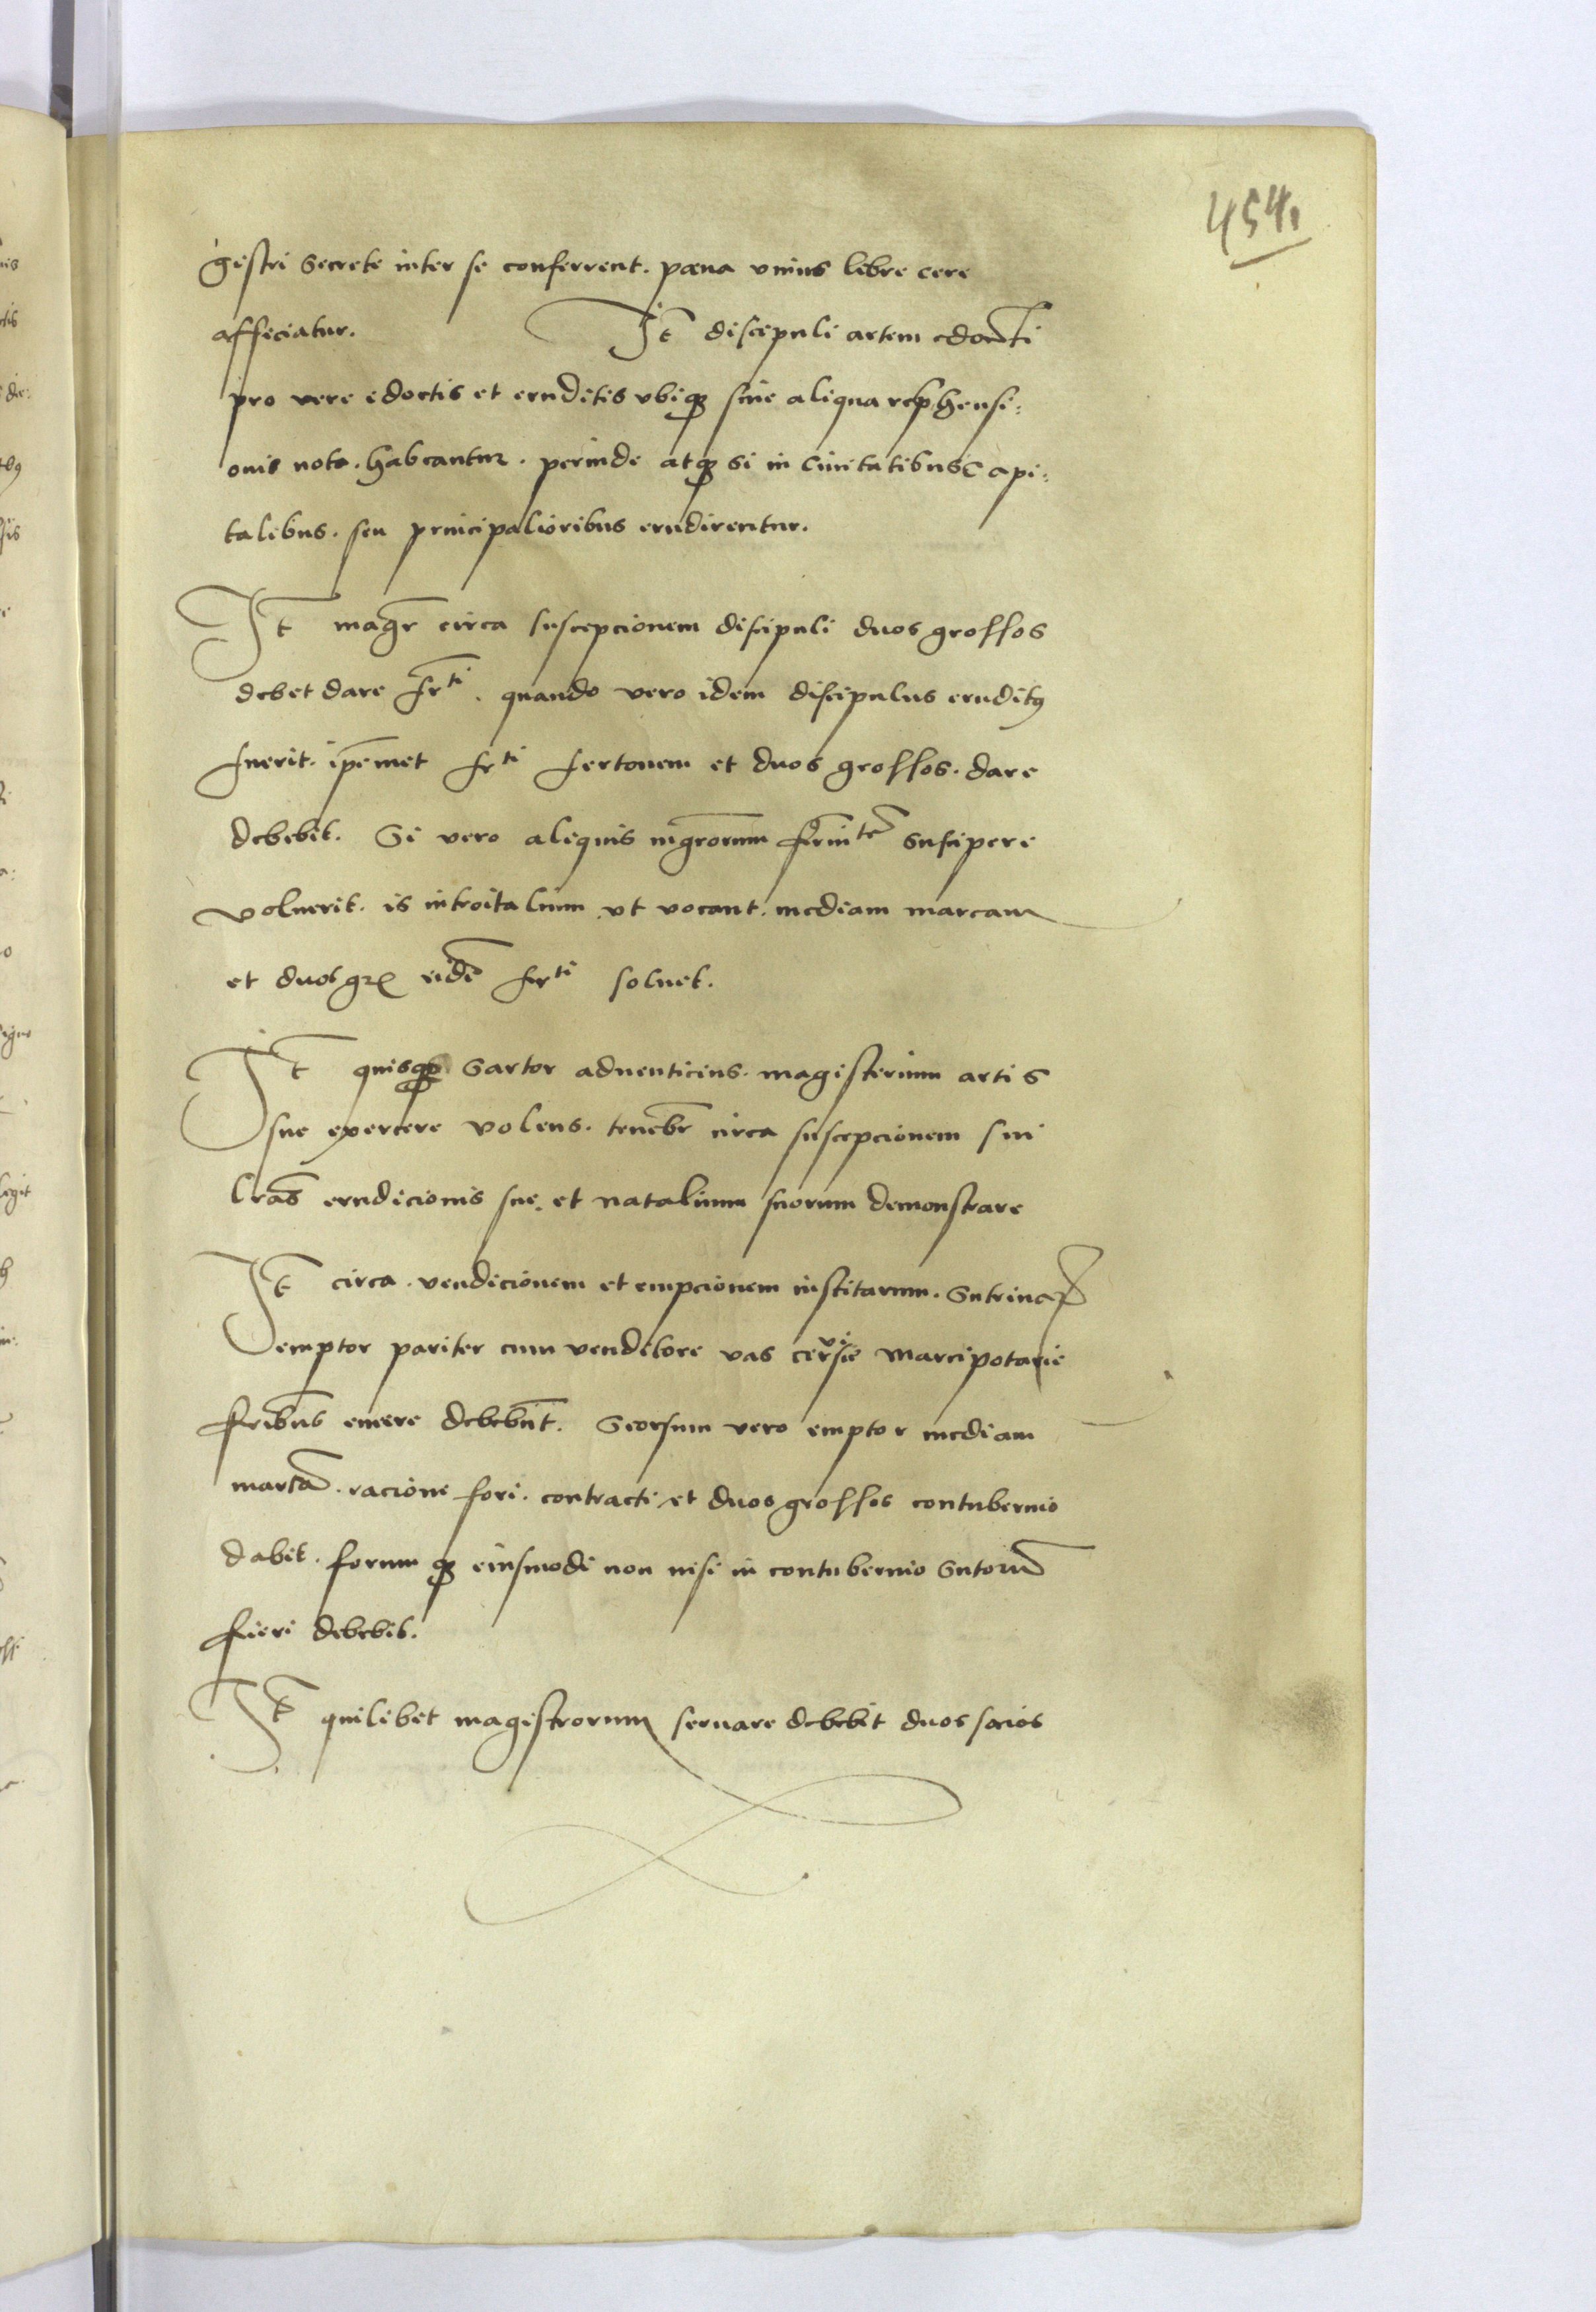 454
gistri secrete inter se conferrent. pœna vnius libre cere
afficiatur. It̄ discipuli artem edocti
pro vere edoctis et eruditis vbiqꝫ sine aliqua rephensi:
onis nota. habeantur. perinde atqꝫ si in Ciuitatibus Capi:
talibus. seu principalioribus erudirentur.
It̄ magr̄ circa suscepcionem discipuli duos grossos
debet dare frti. quando vero idem discipulus eruditꝰ
fuerit. ip̄emet frti fertonem et duos grossos. dare
debebit. Si vero aliquis mgrorum suscipere
voluerit. is introitalium vt vocant. mediam marcam
et duos gr̄ eidē frti soluet.
It̄ quisqꝫ Sartor aduenticius. magisterium artis
sue exercere volens. tenebr̄ circa suscepcionem sui
lr̄as erudicionis sue. et natalium suorum demonstrare
It̄ circa. vendicionem et empcionem institarum. Sutrinaꝝ
emptor pariter cum venditore vas ceruisie marcipotarie
fribus emere debebūt. Seorsum vero emptor mediam
marcā. racione fori. contracti et duos grossos contubernio
dabit. forum qꝫ eiusmodi non nisi in contubernio Sutorū
fieri debebit.
It̄ quilibet magistrorum seruare debebit duos socios